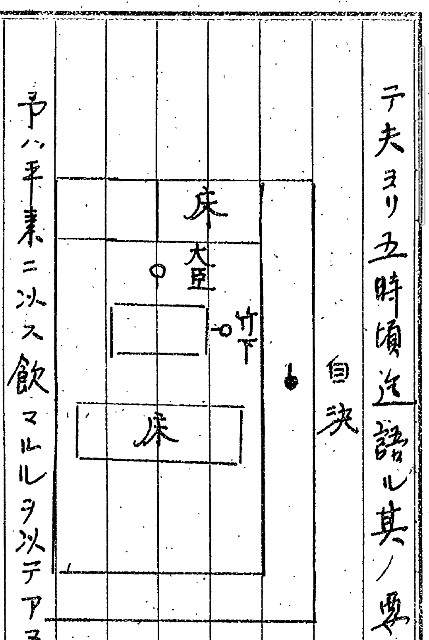 テ夫ヨリ五時頃迄語ル其ノ要
自決
床
大臣
竹下
床
予ハ平素ニ以ス飲マルルヲ以テア